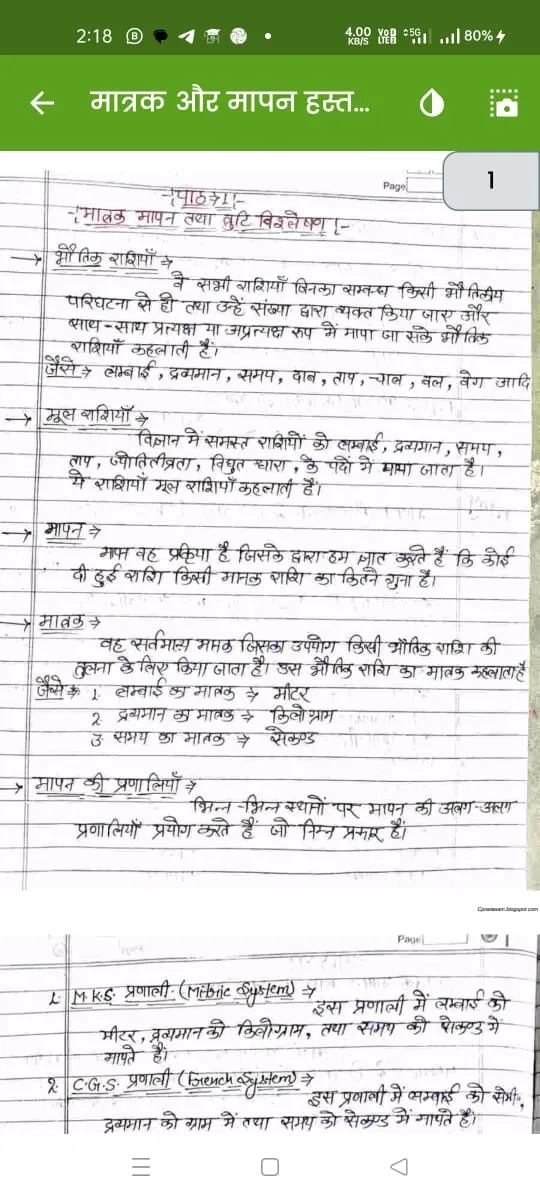 2:18
4.00 KB/S
5G
80%
मात्रक और मापन हस्त...
1
Page
पाठ→1
मात्रक मापन तथा त्रुटि विश्लेषण
→ भौतिक राशियाँ ⇒
वे सभी राशियाँ जिनका सम्बन्ध किसी भौतिकीय
परिघटना से हो तथा उन्हें संख्या द्वारा व्यक्त किया जाए और
साथ-साथ प्रत्यक्ष या अप्रत्यक्ष रूप में मापा जा सके भौतिक
राशियाँ कहलाती हैं।
जैसे → लम्बाई, द्रव्यमान, समय, दाब, ताप, चाल, बल, वेग आदि
→ मूल राशियाँ ⇒
विज्ञान में समस्त राशियों को लम्बाई, द्रव्यमान, समय,
ताप, ज्योतितीव्रता, विधुत धारा, के पदों में मापा जाता है।
ये राशियाँ मूल राशियाँ कहलाती हैं।
→ मापन ⇒
मापन वह प्रक्रिया है जिसके द्वारा हम ज्ञात करते हैं कि कोई
दी हुई राशि किसी मानक राशि का कितने गुना है।
→ मात्रक ⇒
वह सर्वमान्य मानक जिसका उपयोग किसी भौतिक राशि की
तुलना के लिए किया जाता है। उस भौतिक राशि का मात्रक कहलाता है
जैसे ⇒ 1. लम्बाई का मात्रक ⇒ मीटर
2. द्रव्यमान का मात्रक ⇒ किलोग्राम
3. समय का मात्रक ⇒ सेकण्ड
→ मापन की प्रणालियाँ ⇒
भिन्न-भिन्न स्थानों पर मापन की अलग-अलग
प्रणालियाँ प्रयोग करते हैं जो निम्न प्रकार हैं।
Cpnarexam.blogspot.com
Page
1. M.K.S. प्रणाली (Mitric System) ⇒
इस प्रणाली में लम्बाई को
मीटर, द्रव्यमान को किलोग्राम, तथा समय को सेकण्ड में
मापते हैं।
2. C.G.S. प्रणाली (French System) ⇒
इस प्रणाली में लम्बाई को सेमी.,
द्रव्यमान को ग्राम में तथा समय को सेकण्ड में मापते हैं।